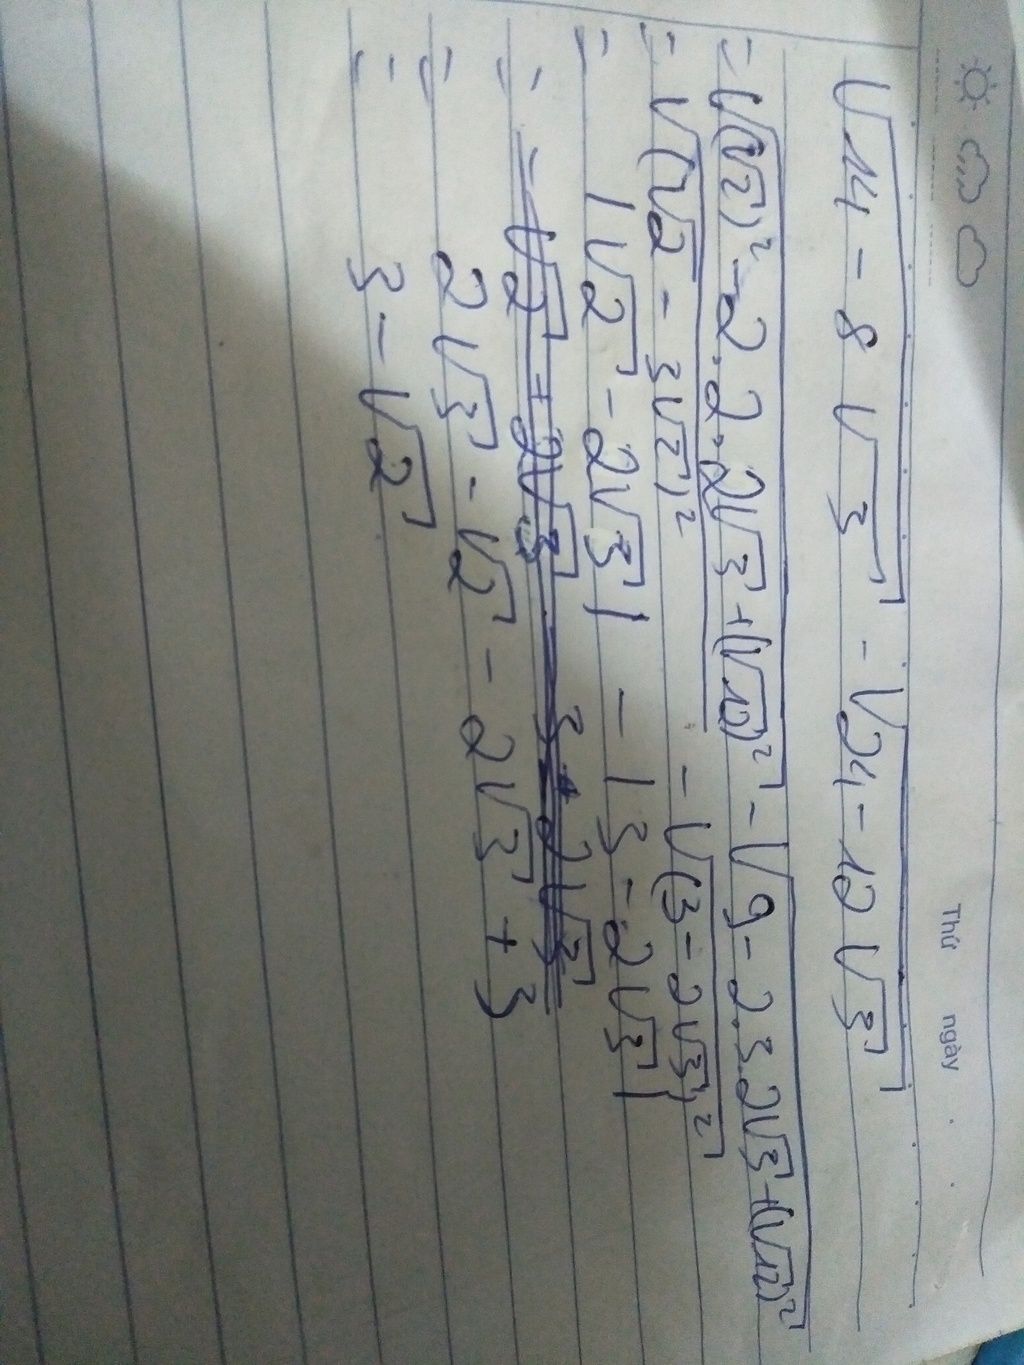 Thứ ngày
√14 - 8√3 - √24 - 12√3
= √(√2)² - 2.2.2√3 + (√12)² - √9 - 2.3.2√3 + (√12)²
= √(√2 - 3√2)² - √(3 - 2√3)²
= |√2 - 2√3| - |3 - 2√3|
= - √2 + 2√3 3 + 2√3
= 2√3 - √2 - 2√3 + 3
= 3 - √2